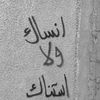 انساك
ولا
استناك